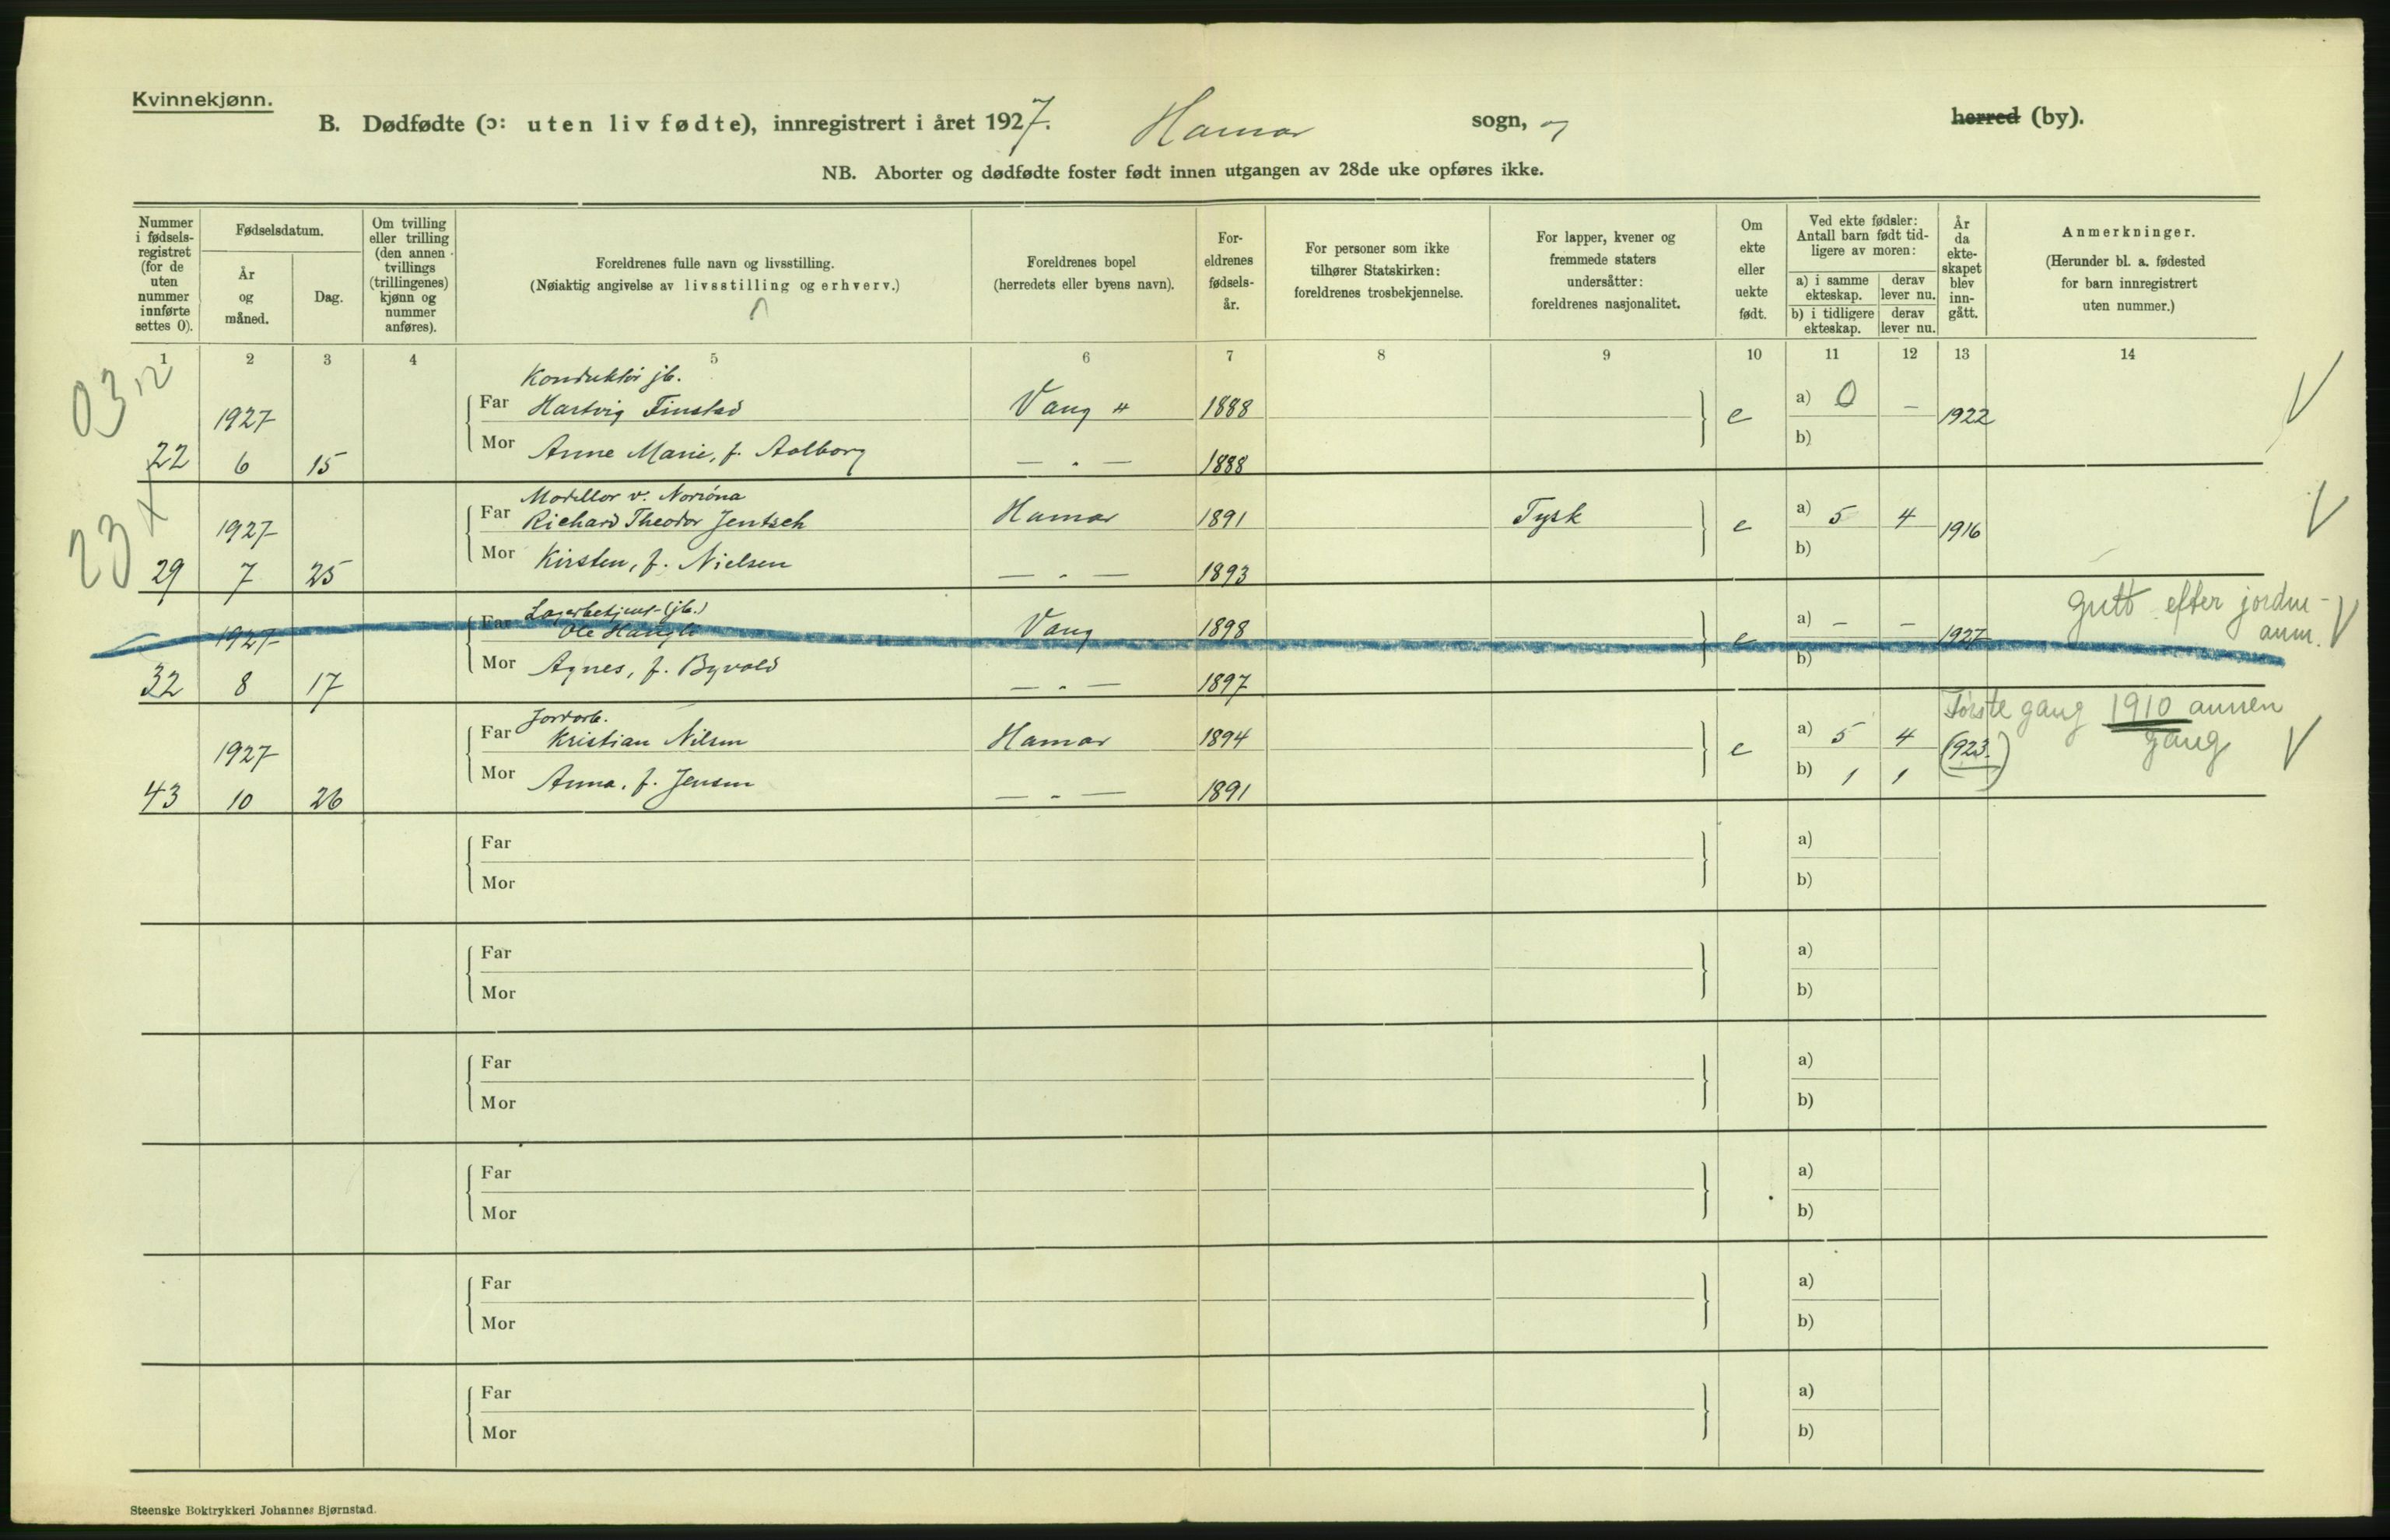 Kvinnekjønn.
B. Dødfødte (ɔ: uten liv fødte), innregistrert i året 1927. Hamar sogn, herred (by).
NB. Aborter og dødfødte foster født innen utgangen av 28de uke opføres ikke.
Nummer i fødsels-registret (for de uten nummer innførte settes 0).
Fødselsdatum.
År og måned.
Dag.
Om tvilling eller trilling (den annen tvillings (trillingenes) kjønn og nummer anføres).
Foreldrenes fulle navn og livsstilling.
(Nøiaktig angivelse av livsstilling og erhverv.)
Foreldrenes bopel
(herredets eller byens navn).
For-eldrenes fødsels-år.
For personer som ikke tilhører Statskirken: foreldrenes trosbekjennelse.
For lapper, kvener og fremmede staters undersåtter: foreldrenes nasjonalitet.
Om ekte eller uekte født.
Ved ekte fødsler: Antall barn født tid-ligere av moren:
a) i samme ekteskap. derav lever nu.
b) i tidligere ekteskap. derav lever nu.
År da ekte-skapet blev inn-gått.
Anmerkninger.
(Herunder bl. a. fødested for barn innregistrert uten nummer.)
1 2 3 4 5 6 7 8 9 10 11 12 13 14
03 12
Konduktør jb.
1927 Far Hartvig Finstad Vang 1888 e a) 0 — 1922
22 6 15 Mor Anne Marie, f. Aalborg — " — 1888 b)
23 X
Modellør v. Norrøna
1927 Far Richard Theodor Jentsch Hamar 1891 Tysk e a) 5 4 1916
29 7 25 Mor Kirsten, f. Nielsen — " — 1893 b)
gutt efter jordm-
anm.
Lagerbetjent (jb.)
1927 Far Ole Haugli Vang 1898 e a) — — 1927
32 8 17 Mor Agnes, f. Byvold — " — 1897 b)
Første gang 1910 annen
gang
Jordarb.
1927 Far Kristian Nilsen Hamar 1894 e a) 5 4 (1923.)
43 10 26 Mor Anna, f. Jensen — " — 1891 b) 1 1
Far a)
Mor b)
Far a)
Mor b)
Far a)
Mor b)
Far a)
Mor b)
Far a)
Mor b)
Far a)
Mor b)
Steenske Boktrykkeri Johannes Bjørnstad.